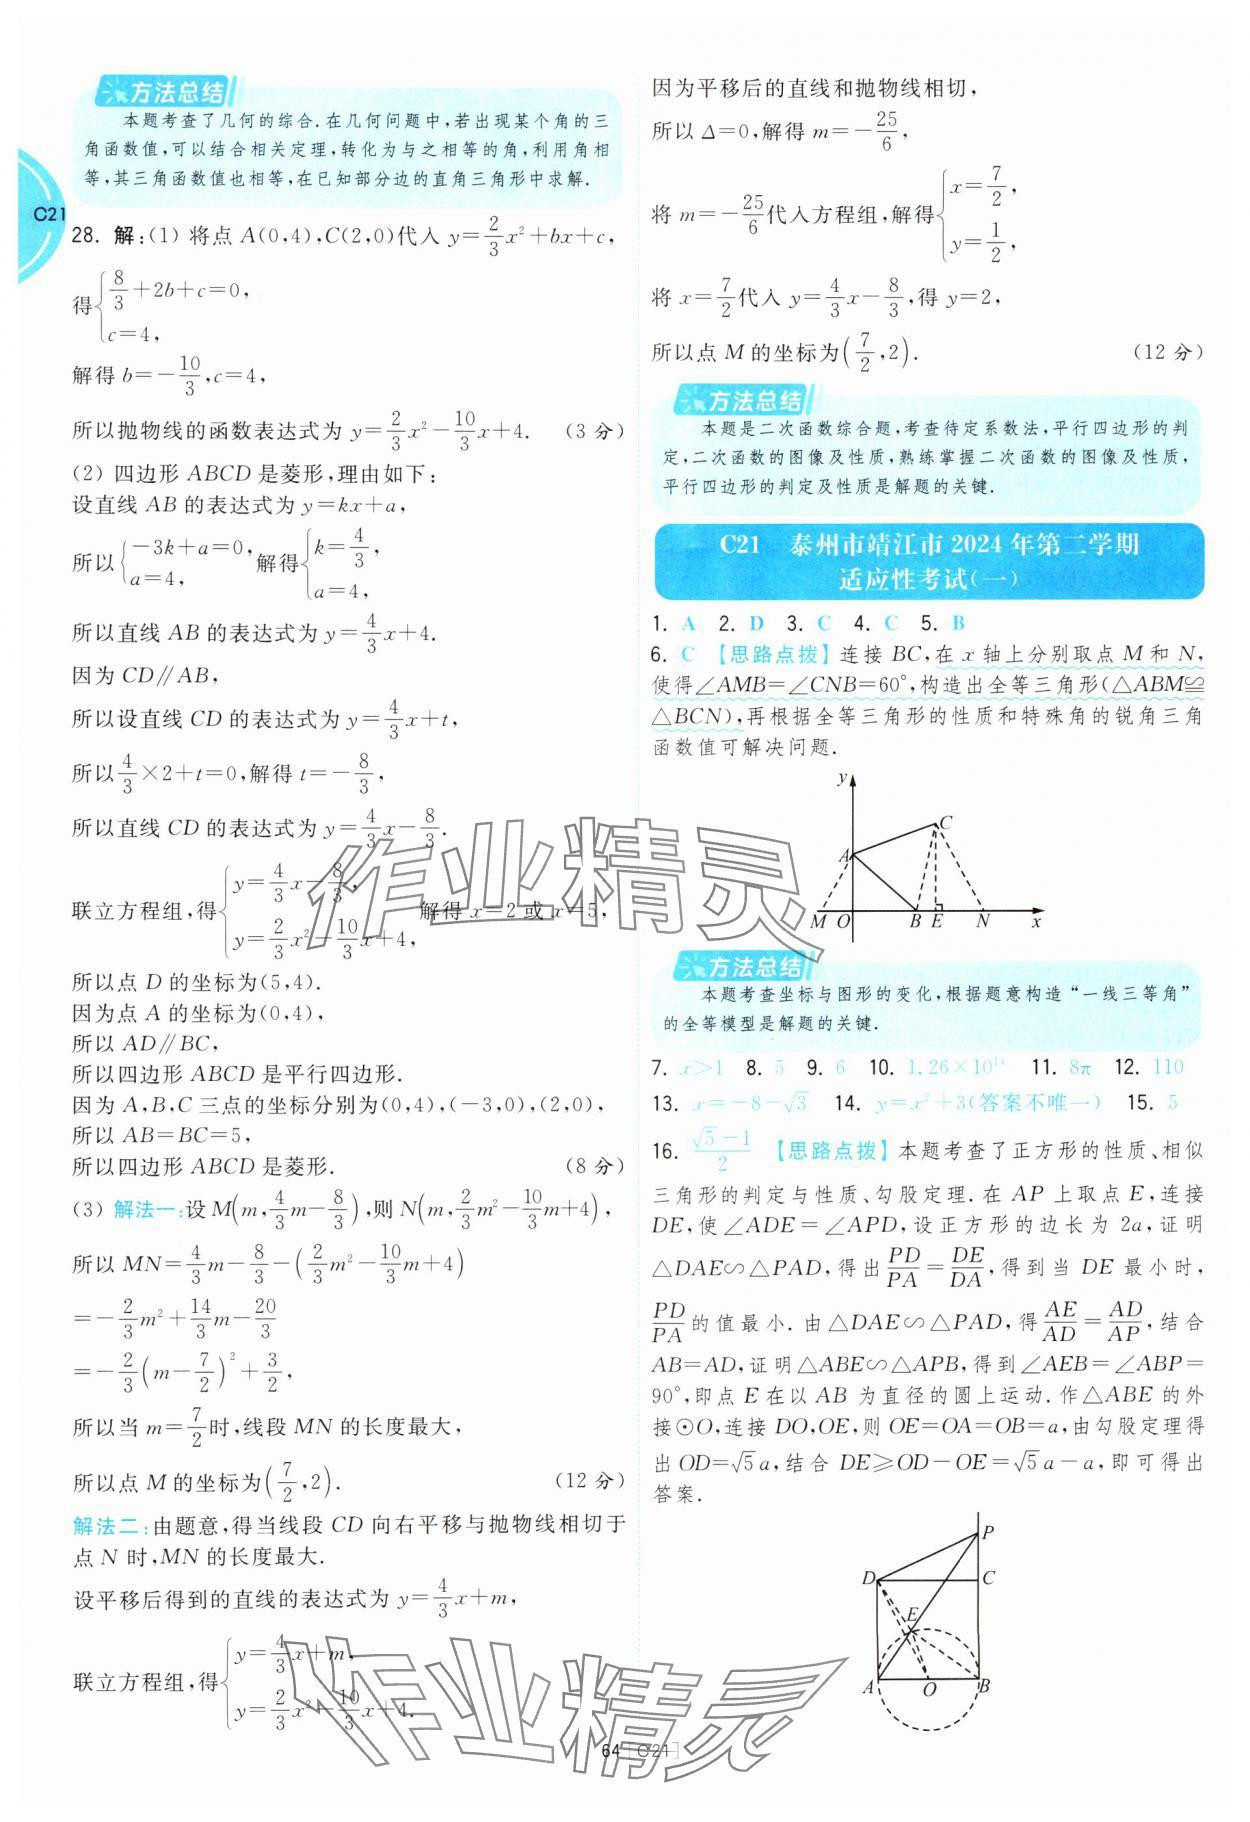 方法总结
本题考查了几何的综合.在几何问题中,若出现某个角的三
角函数值,可以结合相关定理,转化为与之相等的角,利用角相
等,其三角函数值也相等,在已知部分边的直角三角形中求解.
C21
28. 解:(1) 将点 A(0,4),C(2,0)代入 y=2/3x²+bx+c,
得{8/3+2b+c=0,
c=4,
解得 b=-10/3,c=4,
所以抛物线的函数表达式为 y=2/3x²-10/3x+4. (3 分)
(2) 四边形 ABCD 是菱形,理由如下:
设直线 AB 的表达式为 y=kx+a,
所以{-3k+a=0, a=4, 解得{k=4/3, a=4,
所以直线 AB 的表达式为 y=4/3x+4.
因为 CD∥AB,
所以设直线 CD 的表达式为 y=4/3x+t,
所以4/3×2+t=0,解得 t=-8/3,
所以直线 CD 的表达式为 y=4/3x-8/3.
联立方程组,得{y=4/3x-8/3, y=2/3x²-10/3x+4, 解得 x=2 或 x=5,
所以点 D 的坐标为(5,4).
因为点 A 的坐标为(0,4),
所以 AD∥BC,
所以四边形 ABCD 是平行四边形.
因为 A,B,C 三点的坐标分别为(0,4),(-3,0),(2,0),
所以 AB=BC=5,
所以四边形 ABCD 是菱形. (8 分)
(3) 解法一:设 M(m,4/3m-8/3),则 N(m,2/3m²-10/3m+4),
所以 MN=4/3m-8/3-(2/3m²-10/3m+4)
=-2/3m²+14/3m-20/3
=-2/3(m-7/2)²+3/2,
所以当 m=7/2时,线段 MN 的长度最大,
所以点 M 的坐标为(7/2,2). (12 分)
解法二:由题意,得当线段 CD 向右平移与抛物线相切于
点 N 时,MN 的长度最大.
设平移后得到的直线的表达式为 y=4/3x+m,
联立方程组,得{y=4/3x+m, y=2/3x²-10/3x+4.
因为平移后的直线和抛物线相切,
所以 Δ=0,解得 m=-25/6,
将 m=-25/6代入方程组,解得{x=7/2, y=1/2,
将 x=7/2代入 y=4/3x-8/3,得 y=2,
所以点 M 的坐标为(7/2,2). (12 分)
方法总结
本题是二次函数综合题,考查待定系数法,平行四边形的判
定,二次函数的图像及性质,熟练掌握二次函数的图像及性质,
平行四边形的判定及性质是解题的关键.
C21 泰州市靖江市 2024 年第二学期
适应性考试(一)
1. A 2. D 3. C 4. C 5. B
6. C 【思路点拨】连接 BC,在 x 轴上分别取点 M 和 N,
使得∠AMB=∠CNB=60°,构造出全等三角形(△ABM≌
△BCN),再根据全等三角形的性质和特殊角的锐角三角
函数值可解决问题.
y
C
A
M O B E N x
方法总结
本题考查坐标与图形的变化,根据题意构造“一线三等角”
的全等模型是解题的关键.
7. x>1 8. 5 9. 6 10. 1.26×10¹⁴ 11. 8π 12. 110
13. x=-8-√3 14. y=x²+3(答案不唯一) 15. 5
16. (√5-1)/2 【思路点拨】本题考查了正方形的性质、相似
三角形的判定与性质、勾股定理.在 AP 上取点 E,连接
DE,使∠ADE=∠APD,设正方形的边长为 2a,证明
△DAE∽△PAD,得出PD/PA=DE/DA,得到当 DE 最小时,
PD/PA的值最小.由△DAE∽△PAD,得AE/AD=AD/AP,结合
AB=AD,证明△ABE∽△APB,得到∠AEB=∠ABP=
90°,即点 E 在以 AB 为直径的圆上运动.作△ABE 的外
接⊙O,连接 DO,OE,则 OE=OA=OB=a,由勾股定理得
出 OD=√5a,结合 DE≥OD-OE=√5a-a,即可得出
答案.
P
D C
E
A O B
64 C21
作业精灵
作业精灵